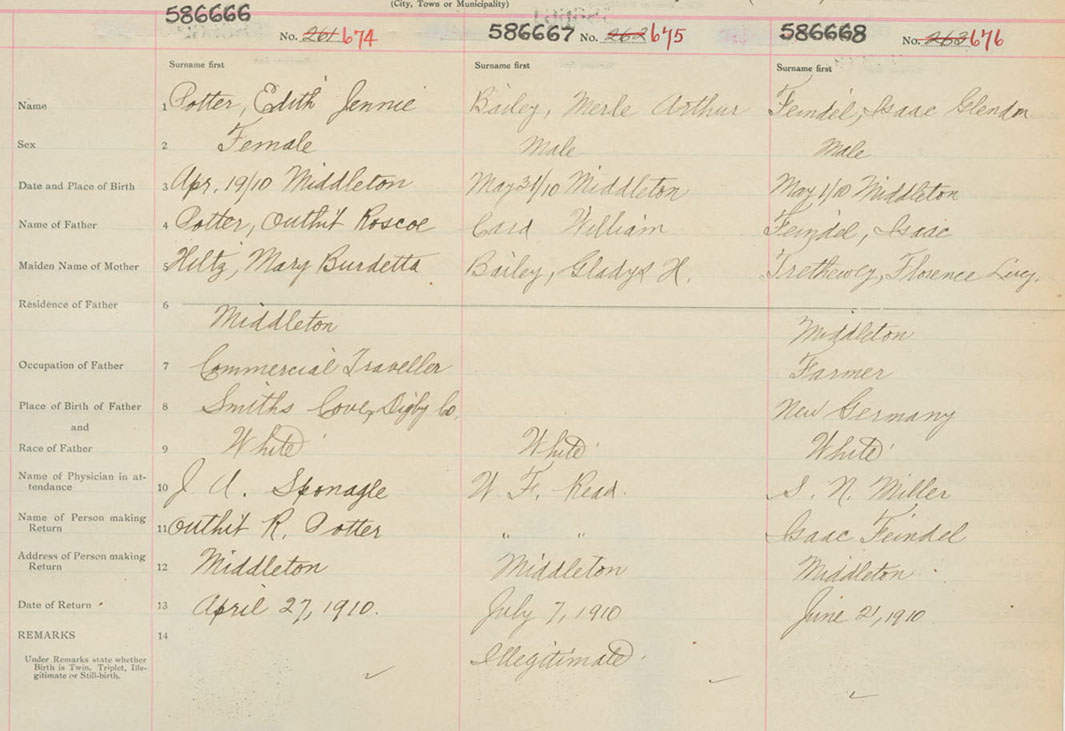 (City, Town or Municipality)
586666 No. 261 674
586667 No. 262 675
586668 No. 263 676
Surname first Surname first Surname first
Name 1 Potter, Edith Jennie Bailey, Merle Arthur Feindel, Isaac Glendon
Sex 2 Female Male Male
Date and Place of Birth 3 Apr. 19/10 Middleton May 31/10 Middleton May 1/10 Middleton
Name of Father 4 Potter, Outhit Roscoe Card William Feindel, Isaac
Maiden Name of Mother 5 Hiltz, Mary Burdetta Bailey, Gladys H. Trethewey, Florence Lucy.
Residence of Father 6 Middleton Middleton
Occupation of Father 7 Commercial Traveller Farmer
Place of Birth of Father 8 Smiths Cove, Digby Co. New Germany
and
Race of Father 9 White White White
Name of Physician in at-
tendance 10 J. A. Sponagle W. F. Read. S. N. Miller
Name of Person making
Return 11 Outhit R. Potter " " Isaac Feindel
Address of Person making
Return 12 Middleton Middleton Middleton
Date of Return 13 April 27, 1910. July 7, 1910 June 2, 1910
REMARKS 14
Under Remarks state whether
Birth is Twin, Triplet, Ille-
gitimate or Still-birth.
Illegitimate.